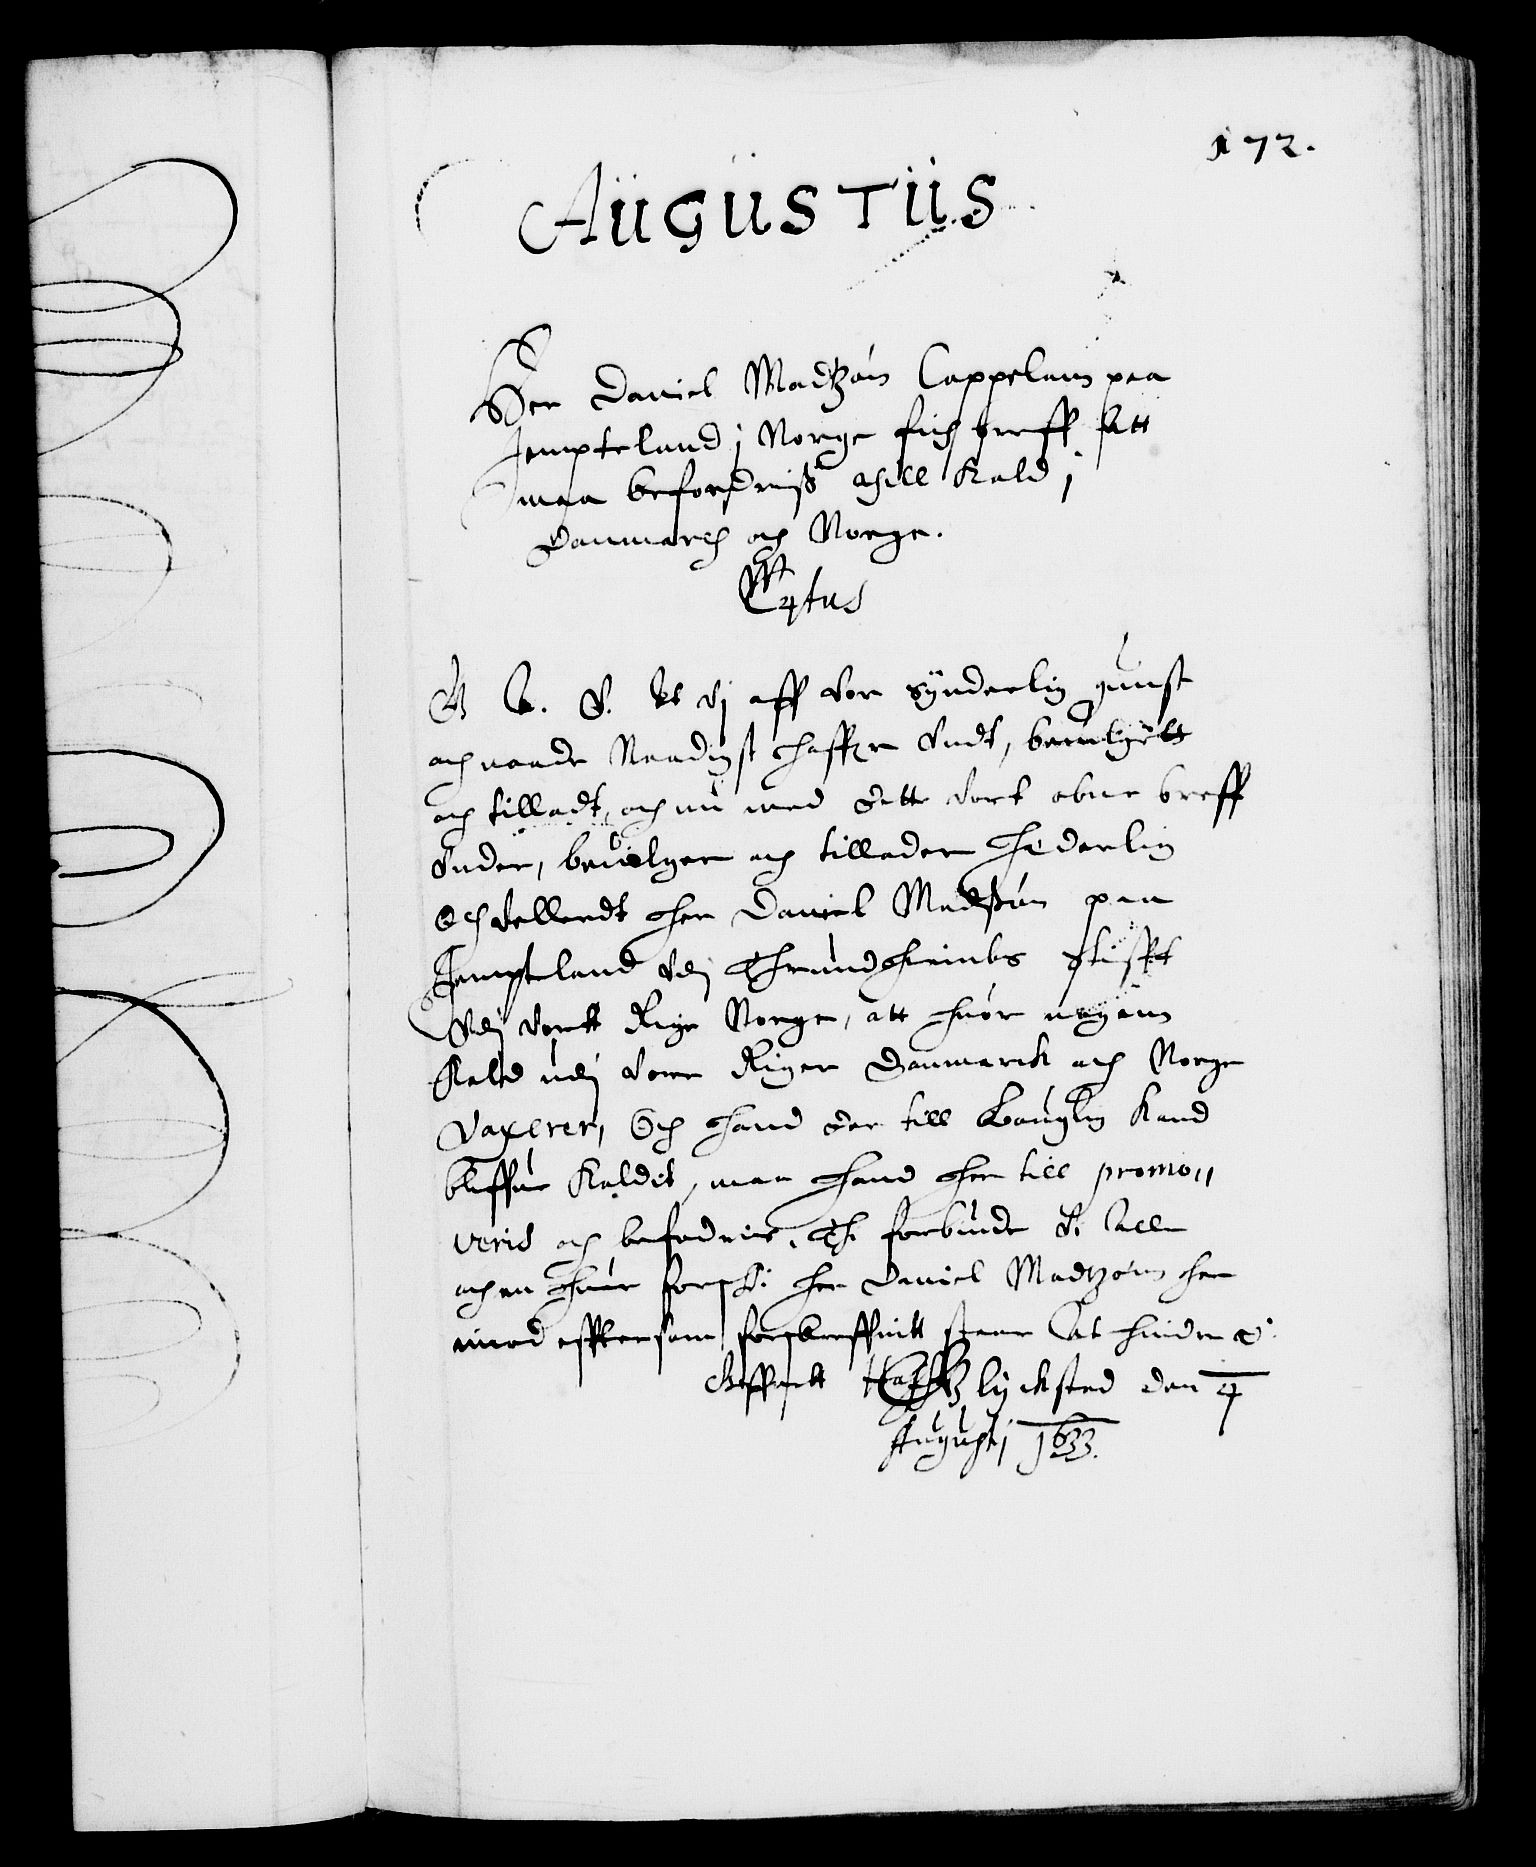 172.
AUGUSTUS
Her Daniel Madtzøn Cappelann paa
Jempteland j Norge fich breff att
maa befordriis thill Kald j
Danmarch och Norge.
C4tus
G A. V. At Vj aff vor synderlig gunst
och naade Naadigst haffer Vndt, beuilgett
och tilladt, och nu med dette vort obne breff
Vnder, beuilger och tillader Hederlig
Och vellerdt her Daniel Madtzøn paa
Jempteland Vdj Thrundhiembs Stifft
Vdj vortt Rige Norge, att huor nogenn
Kald udj vore Riger Danmarck och Norge
Vacerer, Och hand der till Lauglig Kand
bliffue Kaldet, maa hand her till promo„
veris och befodris. Thi forbiude Vi alle
och en huer forskr: her Daniel Madtzøn her
imod effter som forskreffuitt staar at hindre &.
Giffuitt Glycksted den 4
Augustj 1633.